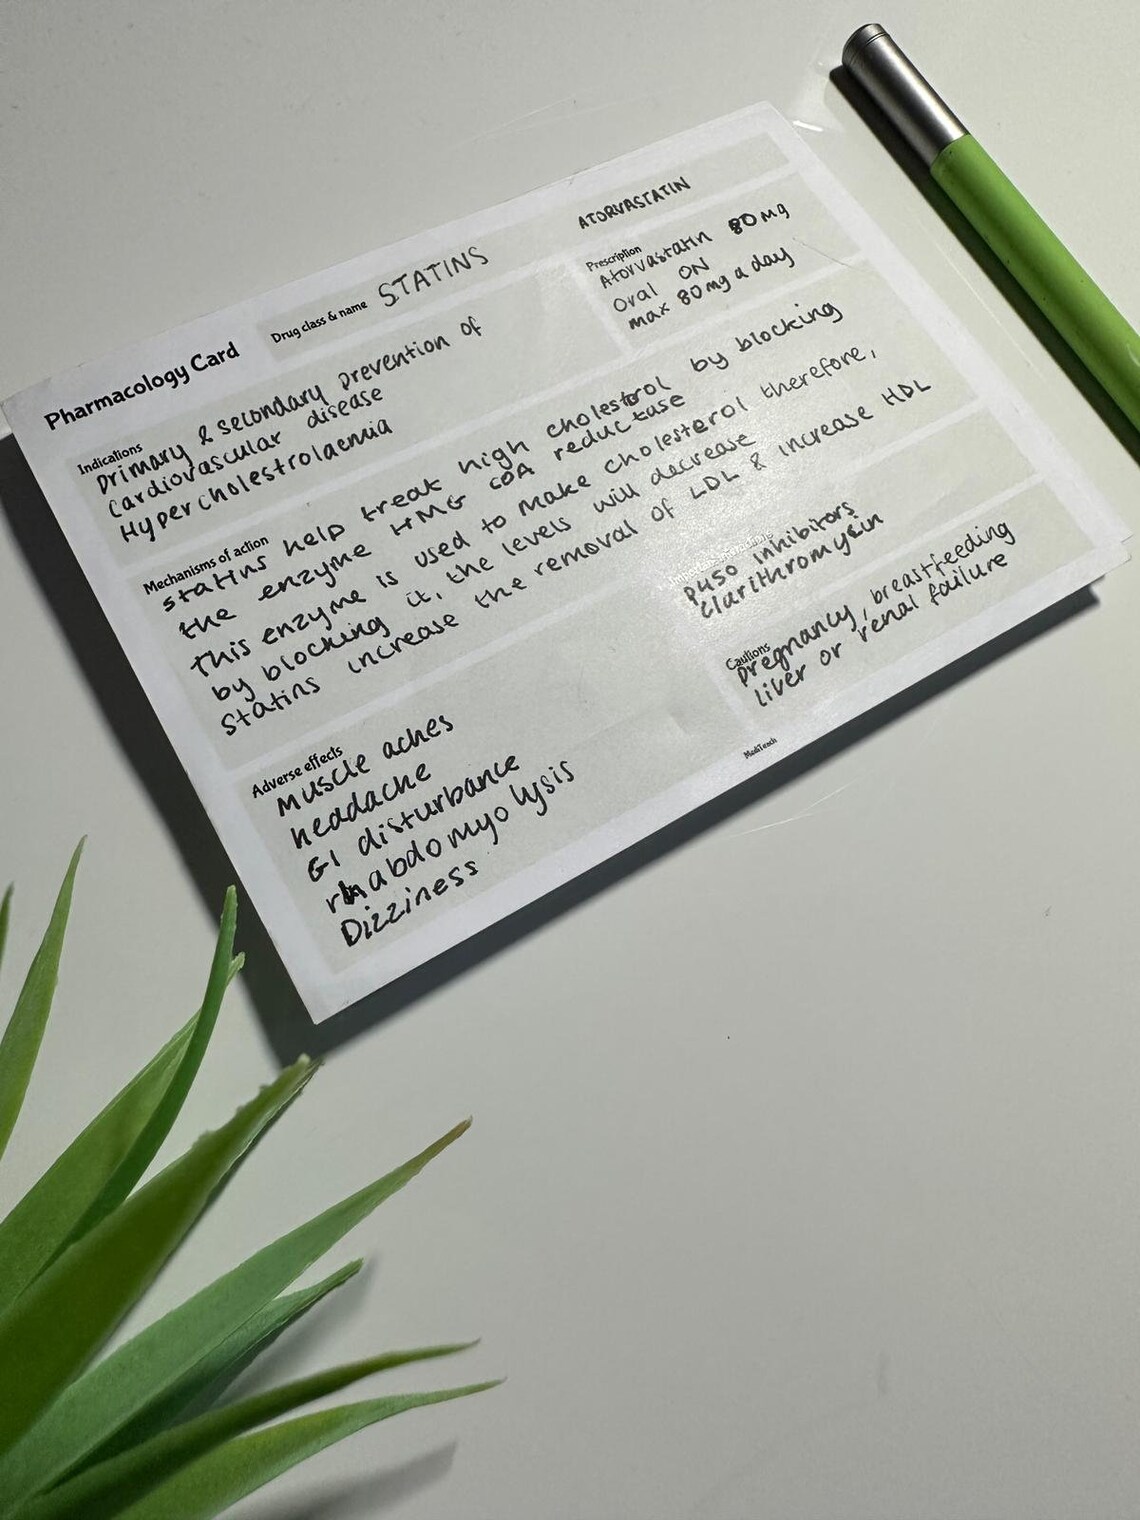 Pharmacology Card
Drug class & name STATINS
ATORVASTATIN
Indications
primary & secondary prevention of
cardiovascular disease
Hypercholestrolaemia
Prescription
Atorvastatin 80 mg
Oral ON
max 80 mg a day
Mechanisms of action
statins help treat high cholestrol by blocking
the enzyme HMG COA reductase
This enzyme is used to make cholesterol therefore,
by blocking it, the levels will decrease
Statins increase the removal of LDL & increase HDL
Adverse effects
muscle aches
headache
GI disturbance
rhabdomyolysis
Dizziness
P450 inhibitors
clarithromycin
Cautions
pregnancy, breastfeeding
liver or renal failure
MediTeach